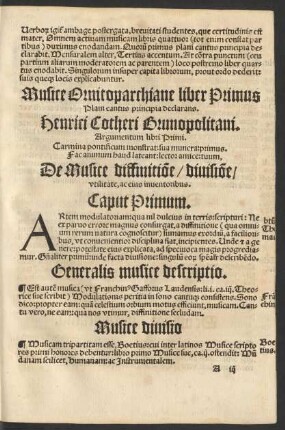 Verbox igit ambage postergata, breuitati studentes, que certitudinis est
mater, Omnem actiuam musicam libris quatuor (tot enim constat par
tibus) duximus enodandam. Quorũ primus plani cantus principia de
clarabit. Mensuralem alter, Tertius accentum. Ac cõtra punctum (ceu
partium aliarum moderatorem ac parentem) loco postremo liber quar
tus enodabit. Singulorum insuper capita librorum, prout ordo deposcit
suis queq; locis explicabuntur.
Musice Ornitoparchiane liber Primus
Plani cantus principia declarans.
Henrici Cotheri Grunopolitani.
Argumentum libri Primi.
Carmina pontificum monstrat: sua munera primus.
Fac animum haud lateant: lector amice tuum,
De Musice diffinitiõe/ diuisiõe/
vtilitate, ac eius inuentoribus.
Caput Primum.
ARtem modulatoriam qua nil dulcius in terris scripturi: Ne
ex paruo errore magnus consurgat, a diffinitione (qua omnium
rerum natura cognoscitur) humanius exordiri, a facilioribus,
vt conuenientior disciplina fiat, incipientes. Unde
generis eius explicata, ad species magis progrediamur.
Generalis musice descriptio.
¶ Est autẽ musica: vt Franchinus Gafforus Laudensis: li. i. ca. iij. Theo-
rice sue scribit: Modulationis peritia in sono cantuq; consistens. Sono
Musice diuisio
¶ Musicam tripartitam esse, Boetius cui inter latinos Musice scripto
res primi honores debentur: libro primo Musice sue, ca. ij. ostendit: Mũ
danam scilicet, Humanam: ac Instrumentalem.
A iij